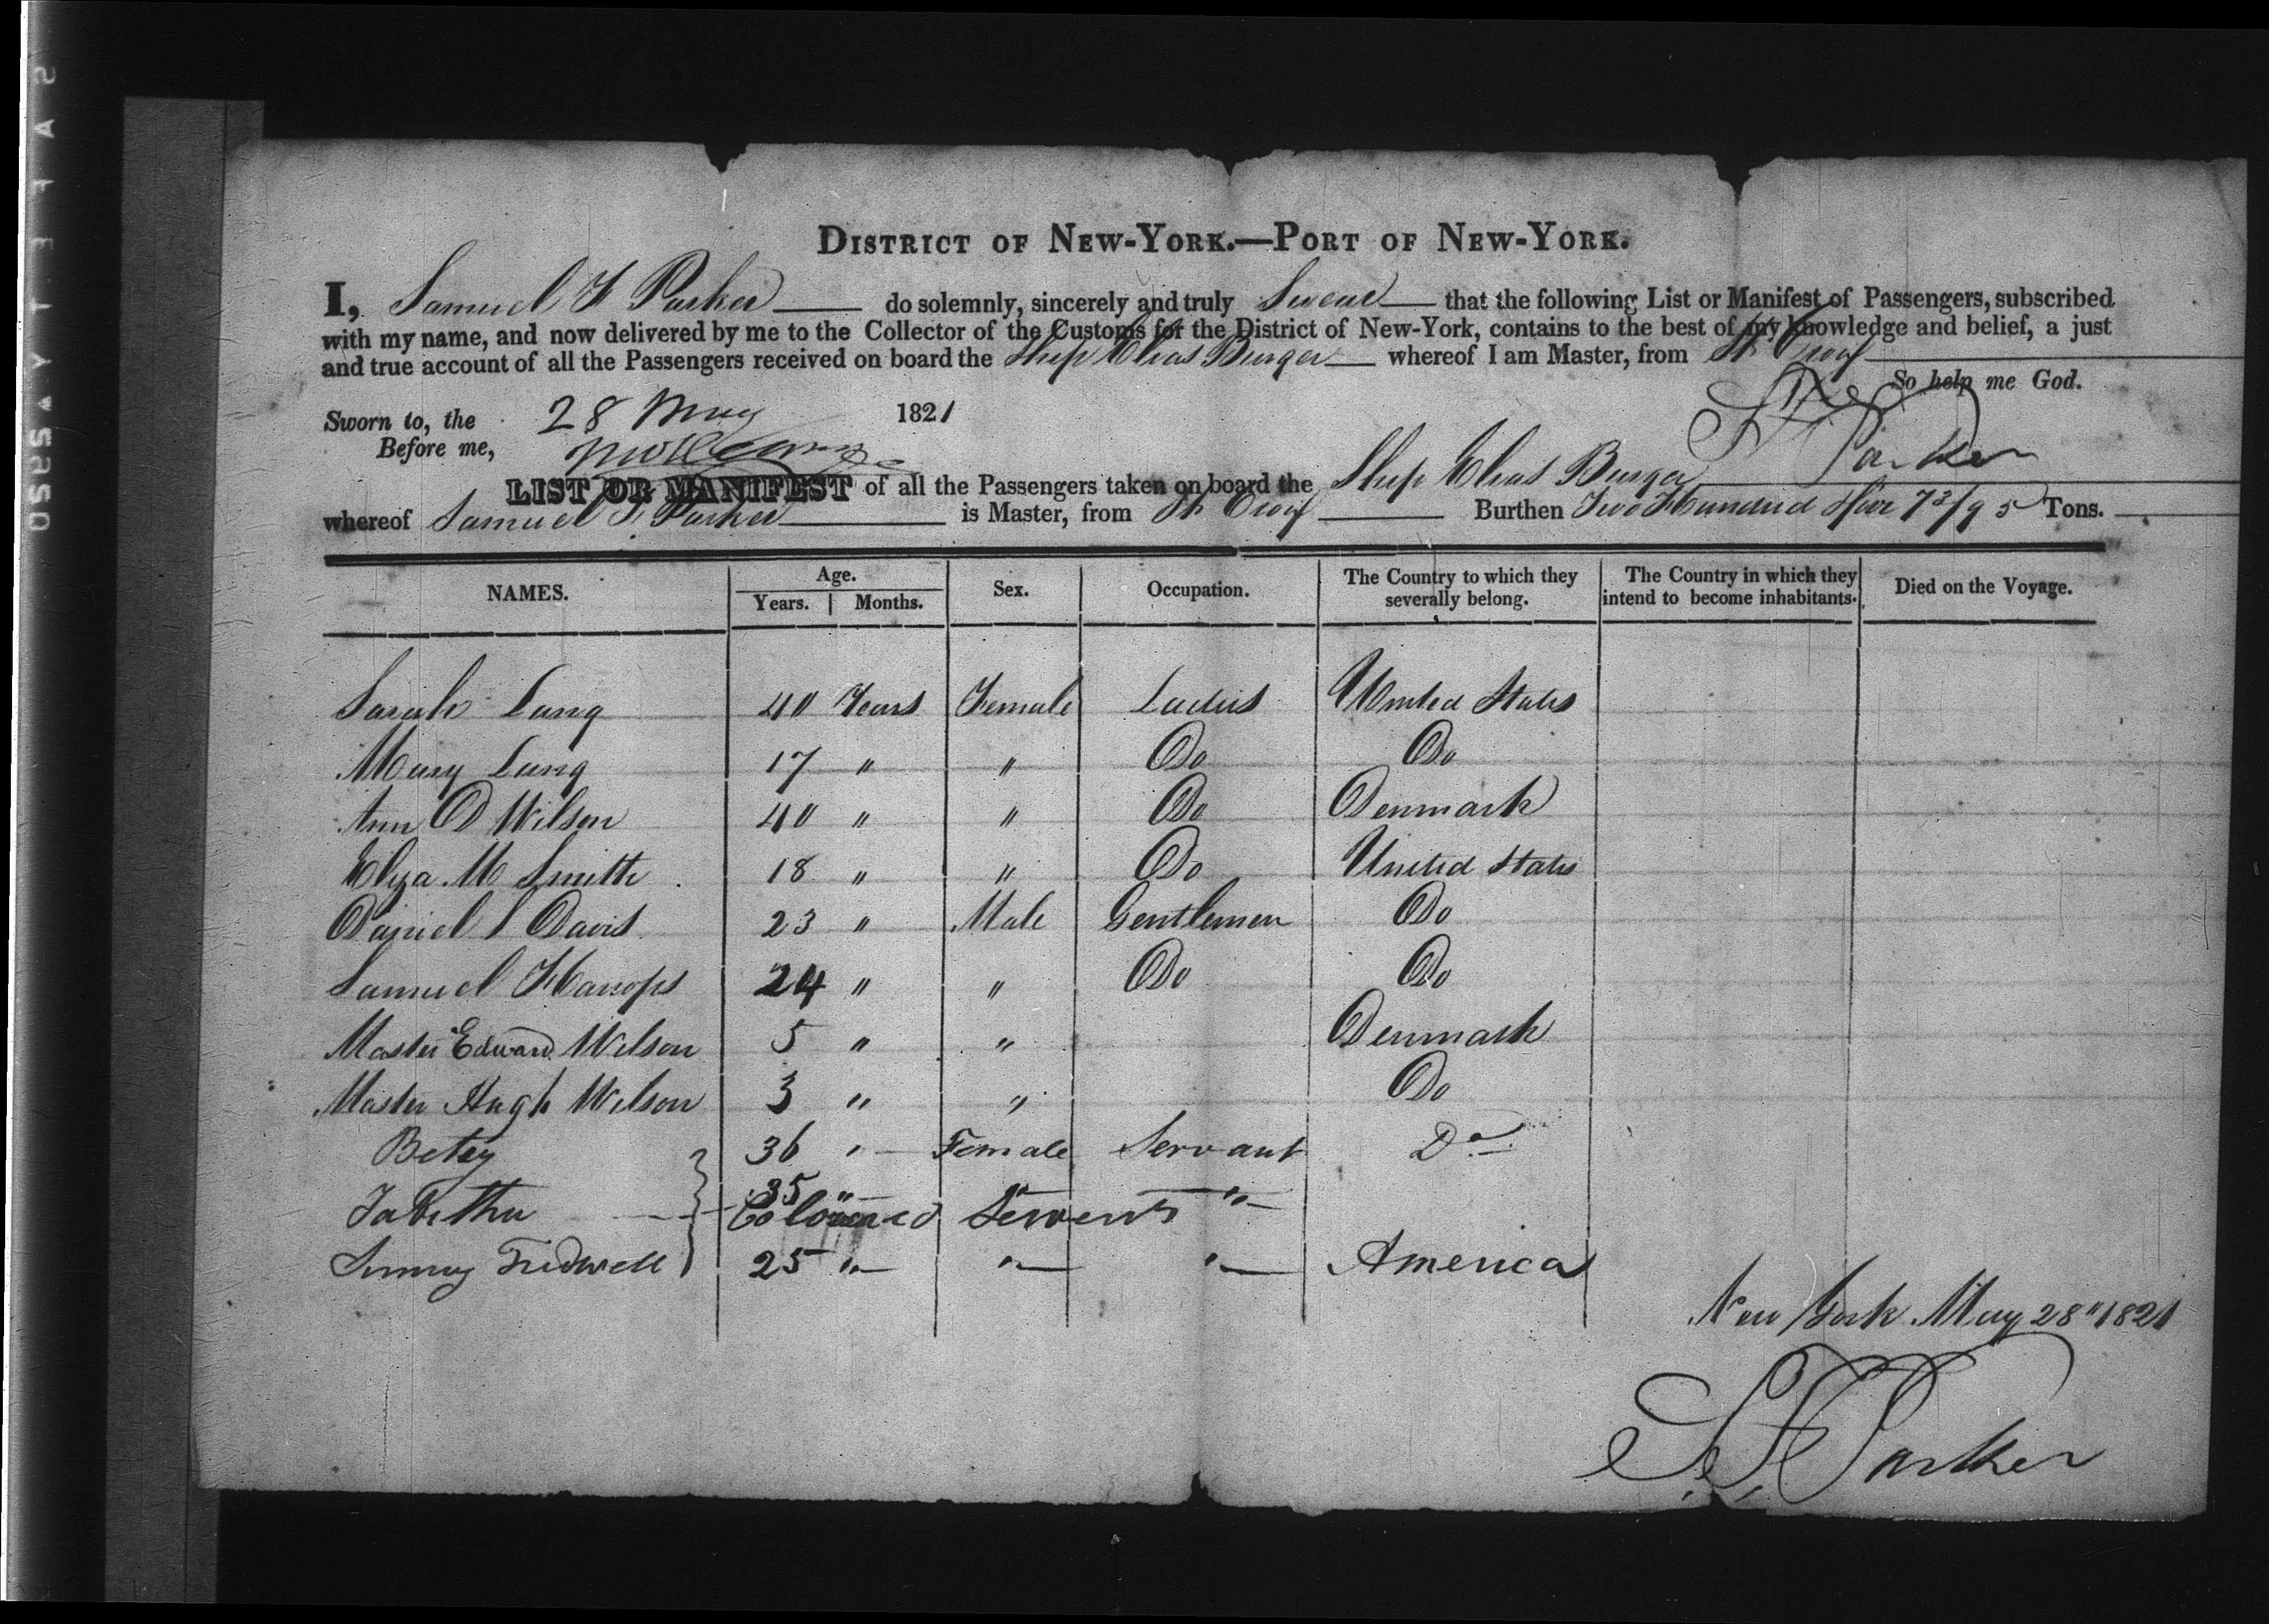 DISTRICT OF NEW-YORK.—PORT OF NEW-YORK.
I, Samuel F Parker do solemnly, sincerely and truly Swear that the following List or Manifest of Passengers, subscribed
with my name, and now delivered by me to the Collector of the Customs for the District of New-York, contains to the best of my knowledge and belief, a just
and true account of all the Passengers received on board the Ship Elias Burger whereof I am Master, from St Croix
So help me God.
Sworn to, the 28 May 1821
Before me,
S F Parker
LIST OR MANIFEST of all the Passengers taken on board the Ship Elias Burger
whereof Samuel F. Parker is Master, from St Croix Burthen Two Hundred 73/95 Tons.
NAMES. Age. Years. Months. Sex. Occupation. The Country to which they severally belong. The Country in which they intend to become inhabitants. Died on the Voyage.
Sarah Lang 40 Years Female Ladies United States
Mary Lang 17 " " Do Do
Ann D Wilson 40 " " Do Denmark
Elyza M Smith 18 " " Do United States
Daniel I Davis 23 " Male Gentlemen Do
Samuel 24 " " Do Do
Master Edward Wilson 5 " " Denmark
Master Hugh Wilson 3 " " Do
Betsy 36 " Female Servant Do
35 " " "
Tabitha Coloured Servents
Tredwell 25 " " " America
New York May 28" 1821
S. F. Parker
0595AYT3FAS